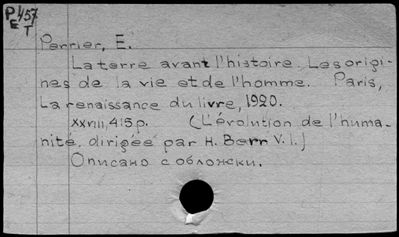 P 457
E
T
Perrier, E.
La terre avant l'histoire. Les origi-
nes de la vie et de l'homme. Paris,
La renaissance du livre, 1920.
XXVIII, 415 p. (L'évolution de l'huma-
nité. dirigée par H. Berr V. I.)
Описано с обложки.